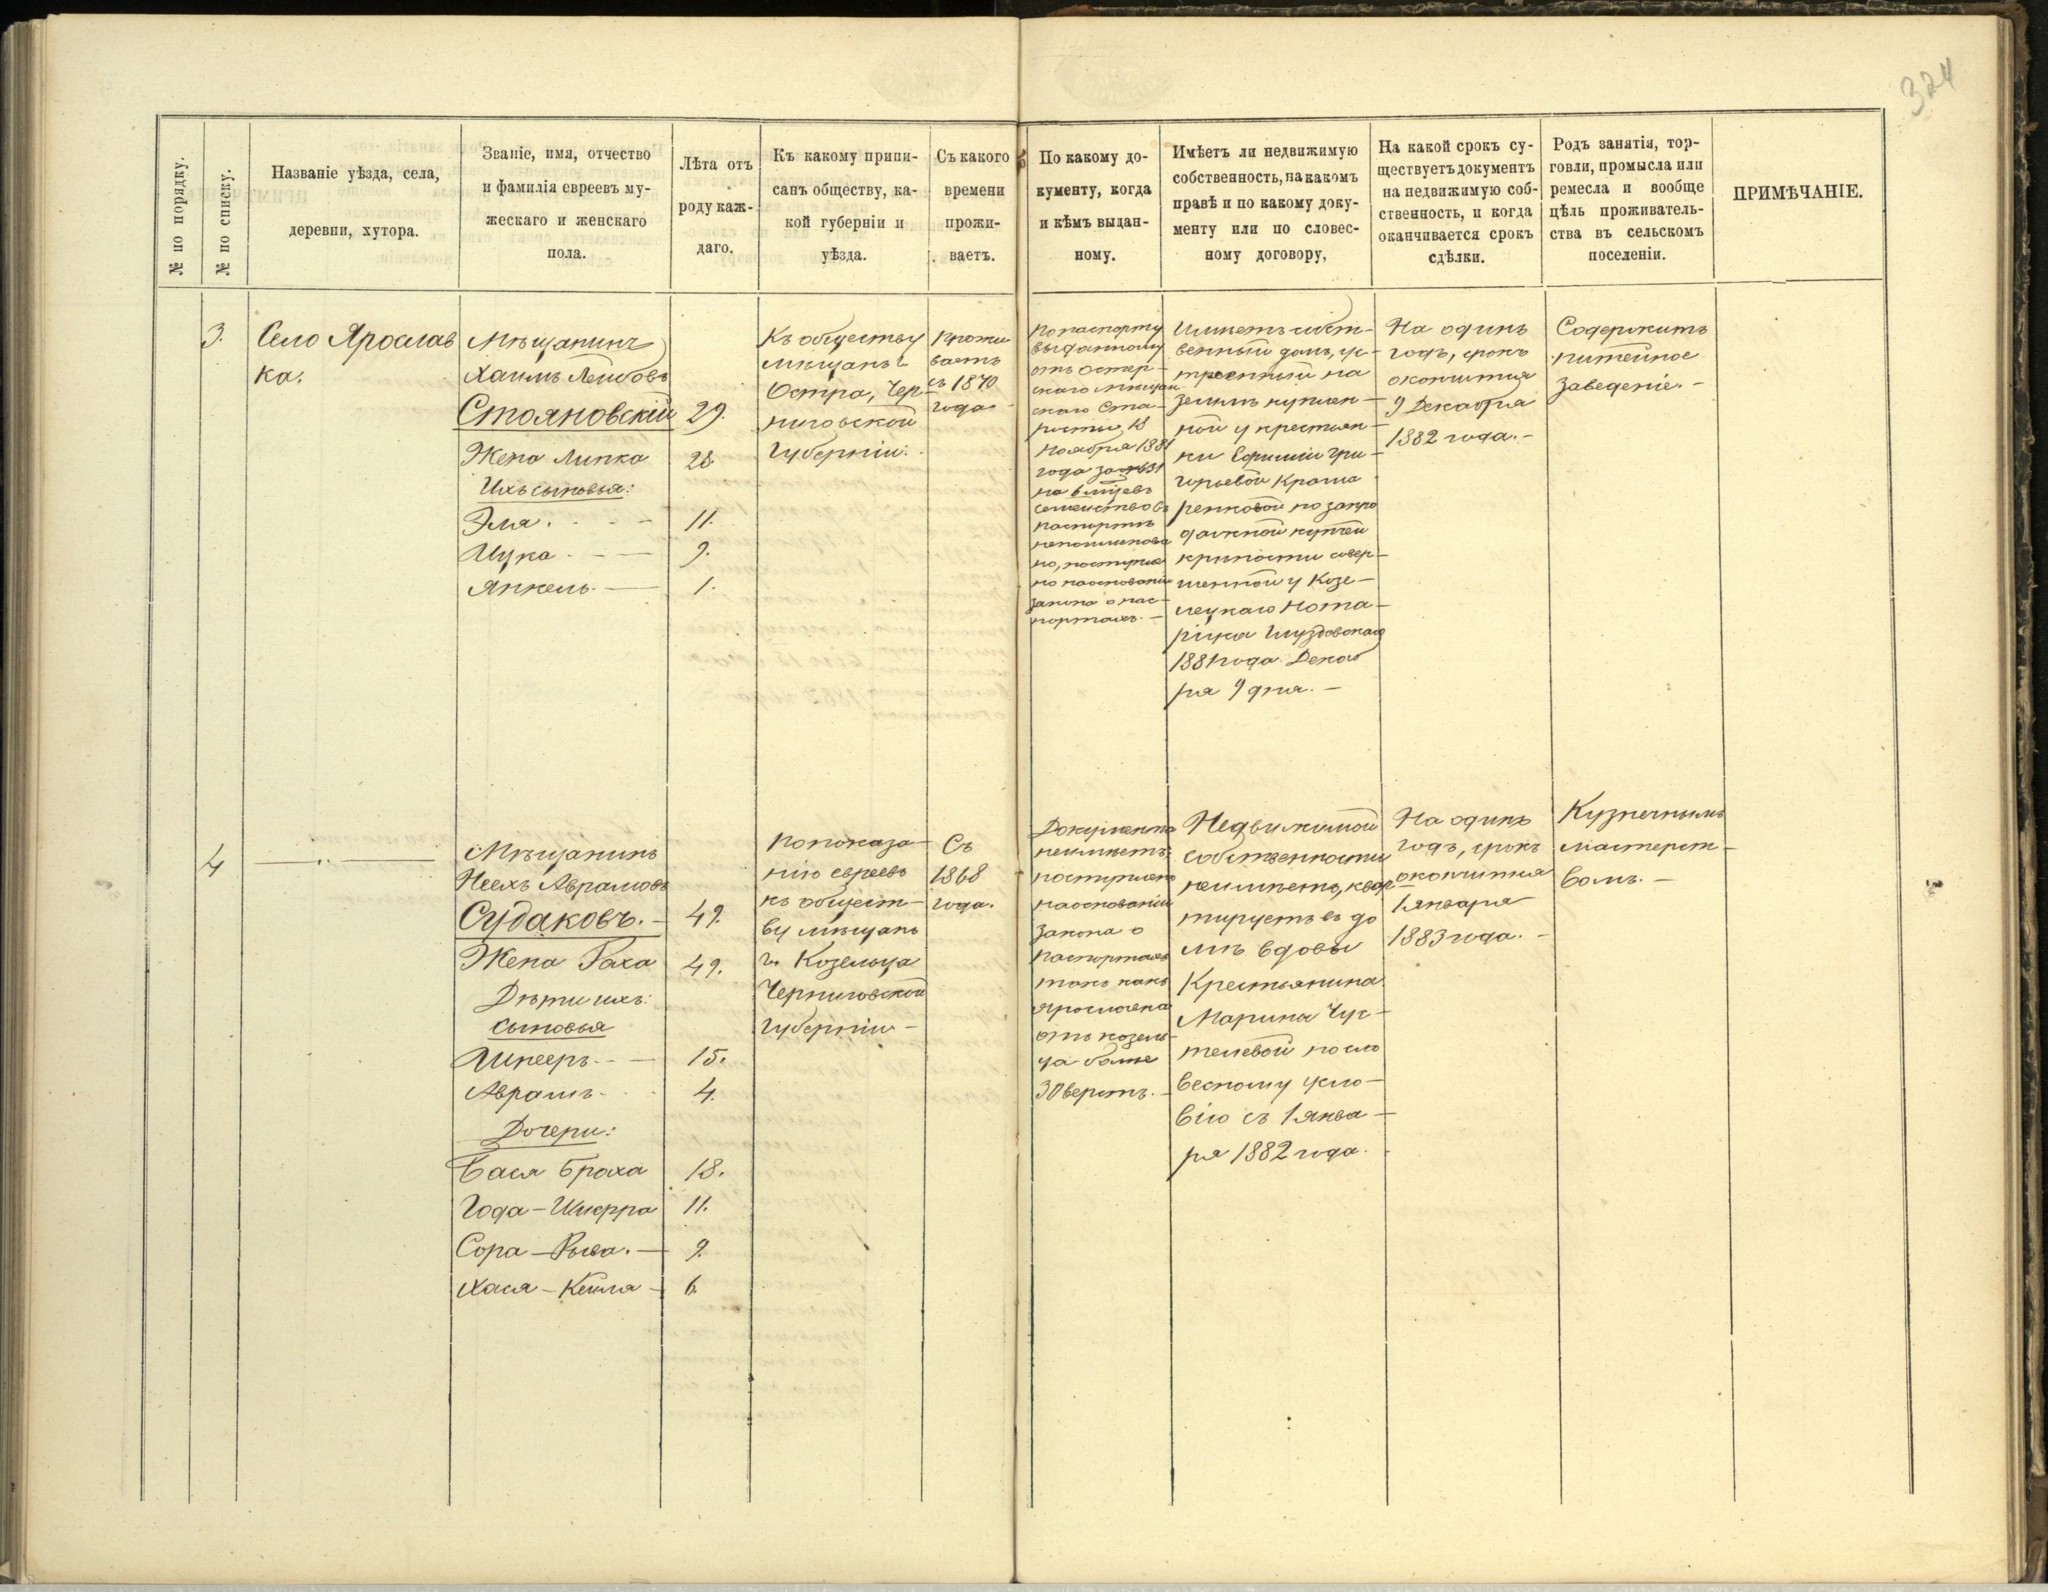 324
№ по порядку.
№ по списку.
Названіе уѣзда, села,
деревни, хутора.
Званіе, имя, отчество
и фамилія евреевъ му-
жескаго и женскаго
пола.
Лѣта отъ
роду каж-
даго.
Къ какому припи-
санъ обществу, ка-
кой губерніи и
уѣзда.
Съ какого
времени
прожи-
ваетъ.
По какому до-
кументу, когда
и кѣмъ выдан-
ному.
Имѣетъ ли недвижимую
собственность, на какомъ
правѣ и по какому доку-
менту или по словес-
ному договору,
На какой срокъ су-
ществуетъ документъ
на недвижимую соб-
ственность, и когда
оканчивается срокъ
сдѣлки.
Родъ занятія, тор-
говли, промысла или
ремесла и вообще
цѣль проживатель-
ства въ сельскомъ
поселеніи.
ПРИМѢЧАНІЕ.
3.
Село Ярослав
ка.
Мѣщанинъ
Хаимъ Лейбовъ
Стояновскій 29.
Жена Липка 28.
Ихъ сыновья:
Эля. 11.
Ицка 9.
Янкель. 1.
Къ обществу
мѣщанъ г.
Остра, Чер-
ниговской
Губерніи.
Прожи
ваетъ
съ 1870
года
По паспорту
выданному
отъ Остер-
скаго мѣщан
скаго Ста-
росты 18
Ноября 1881
года за №
на 6 мѣсев
семейство въ
паспортъ
непоименова
но, поступле
но на основаніи
закона о пас-
портахъ. —
Имѣетъ собст-
венный домъ, ус-
троенный на
землѣ куплен-
ной у крестьян-
ки Ефиміи Гри-
горьевой
по запро
дажной купчей
крѣпости совер-
шенной у Козе-
лецкаго Нота-
ріуса
1881 года Декаб
ря 9 дня. —
На одинъ
годъ, срокъ
окончится
9 Декабря
1882 года. —
Содержитъ
питейное
заведеніе. —
4
— " —
Мѣщанинъ
Песхъ Аврамовъ
Судаковъ. — 49.
Жена Раха 49.
Дѣти ихъ:
сыновья
15.
Аврамъ 4.
Дочери:
Бася Браха 18.
Года-Шифра 11.
Сора-Рыва. — 9.
Хася-Кейла 6.
По показа-
нію евреевъ
къ общест-
ву мѣщанъ
г. Козельца
Черниговской
Губерніи —
Съ
1868
года.
Документа
неимѣетъ;
поступлено
на основаніи
Закона о
паспортахъ
такъ какъ
Ярославка
отъ Козель-
ца болѣе
30 верстъ. —
Недвижимой
собственности
неимѣетъ, квар-
тируетъ въ до
мѣ вдовы
Крестьянина
Марины
по сло
весному усло-
вію съ 1 Янва-
ря 1882 года.
На одинъ
годъ, срокъ
окончится
1 Января
1883 года. —
Кузнечнымъ
мастерст-
вомъ. —